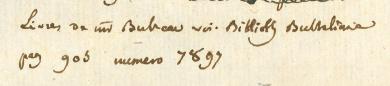 Livres de mr Bulteau voi. Biblioth Bultelliane
pag 905 numero 7897